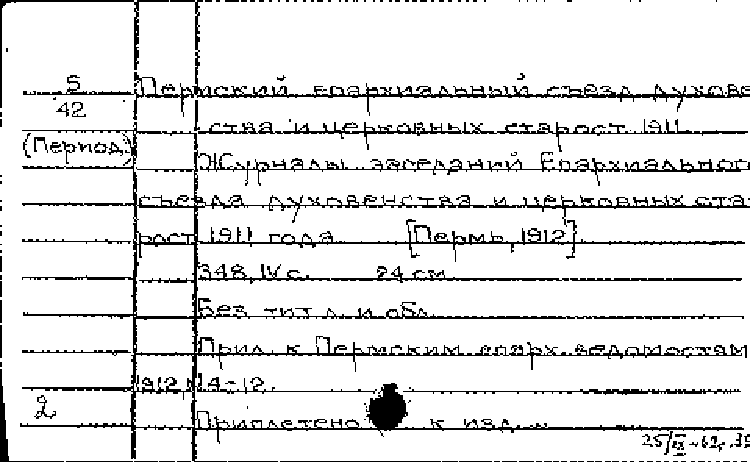 5
42
(Период.)
Пермский епархиальный съезд духове
ства и церковных старост 1911
Журналы заседаний Епархиального
съезда духовенства и церковных ста
рост 1911 года [Пермь, 1912].
348, IV с. 24 см.
Без тит л. и обл.
Прил. к Пермским епарх. ведомостям
1912, 4-12.
2
Приплетено к изд.